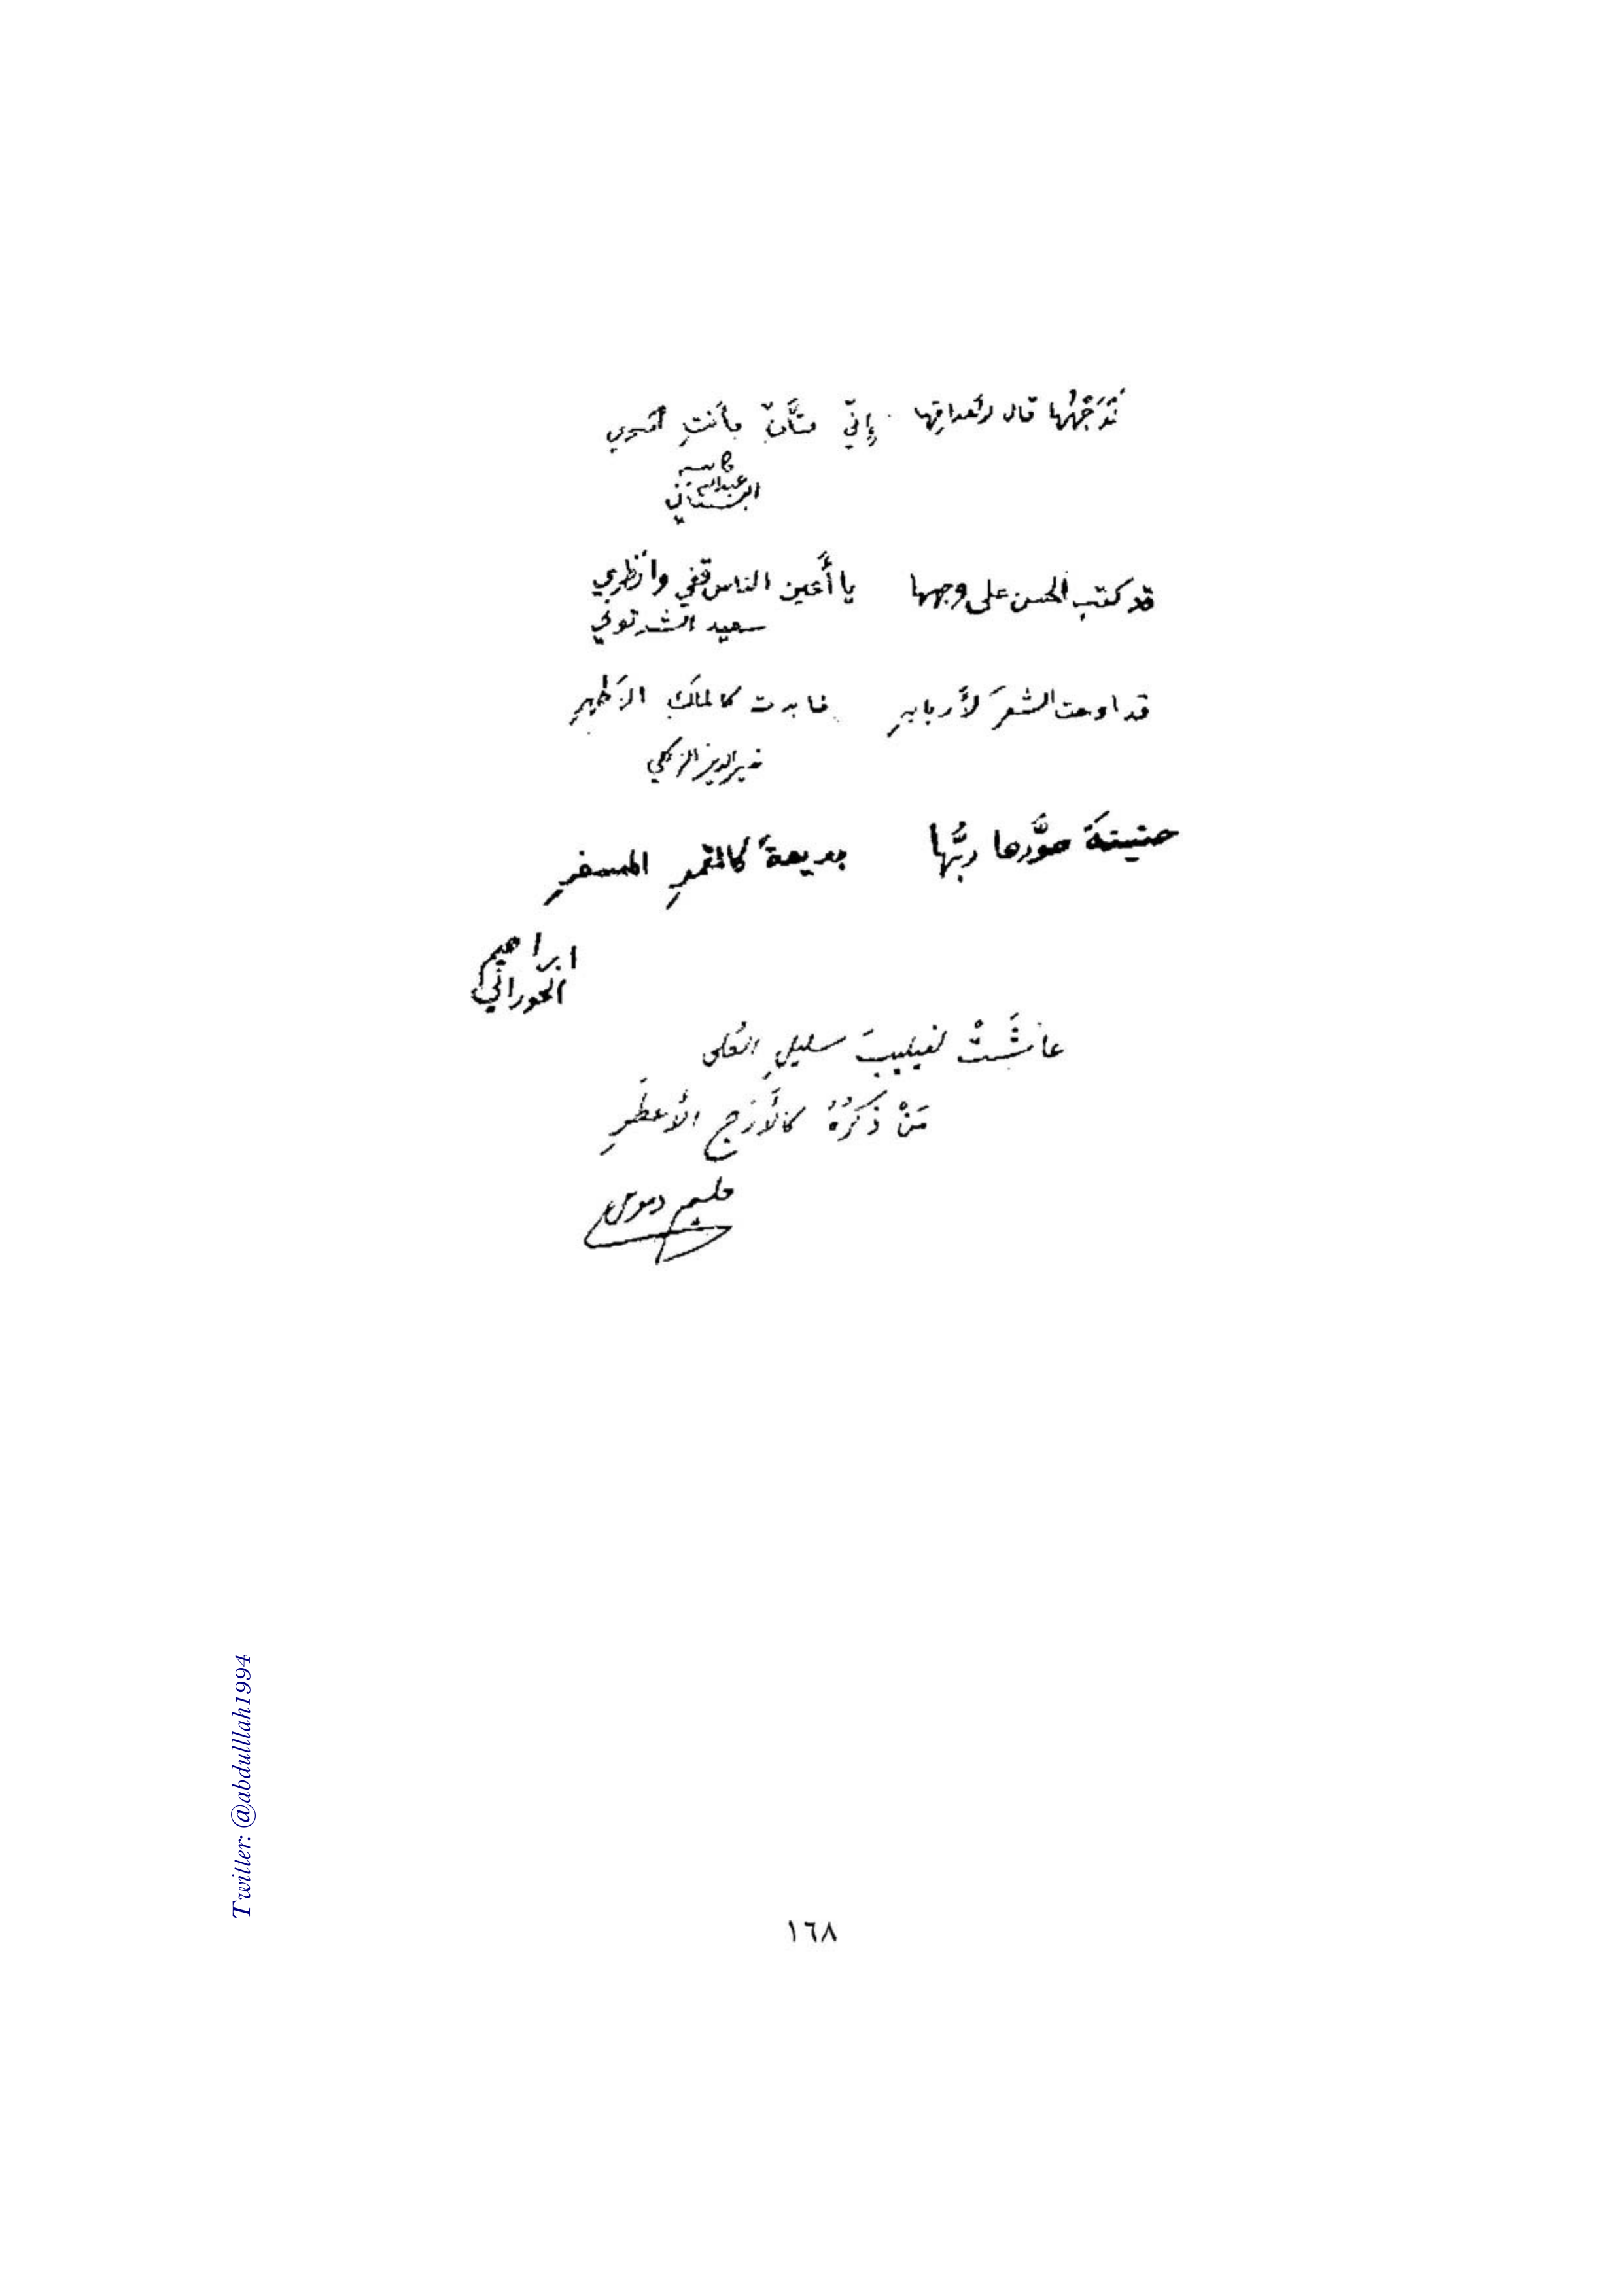 قال لأحداقها إنّي فتّانٌ
عبدالله
البستاني
قد كتب الحسن على وجهها يا أَعين الناس قفي وانظري
سعيد الشرتوني
قد اوحت الشعرَ لأَربابهِ كالملكِ الأطهرِ
خير الدين الزركلي
صوَّرها ربُّها بديعةٌ كالقمرِ المسفرِ
ابراهيم
الحوراني
عاشَتْ لفيليبَ سليلِ العُلى
مَنْ ذكرُهُ كالأَرَجِ الأَعطَرِ
حليم دموس
Twitter: @abdulllah1994
١٦٨